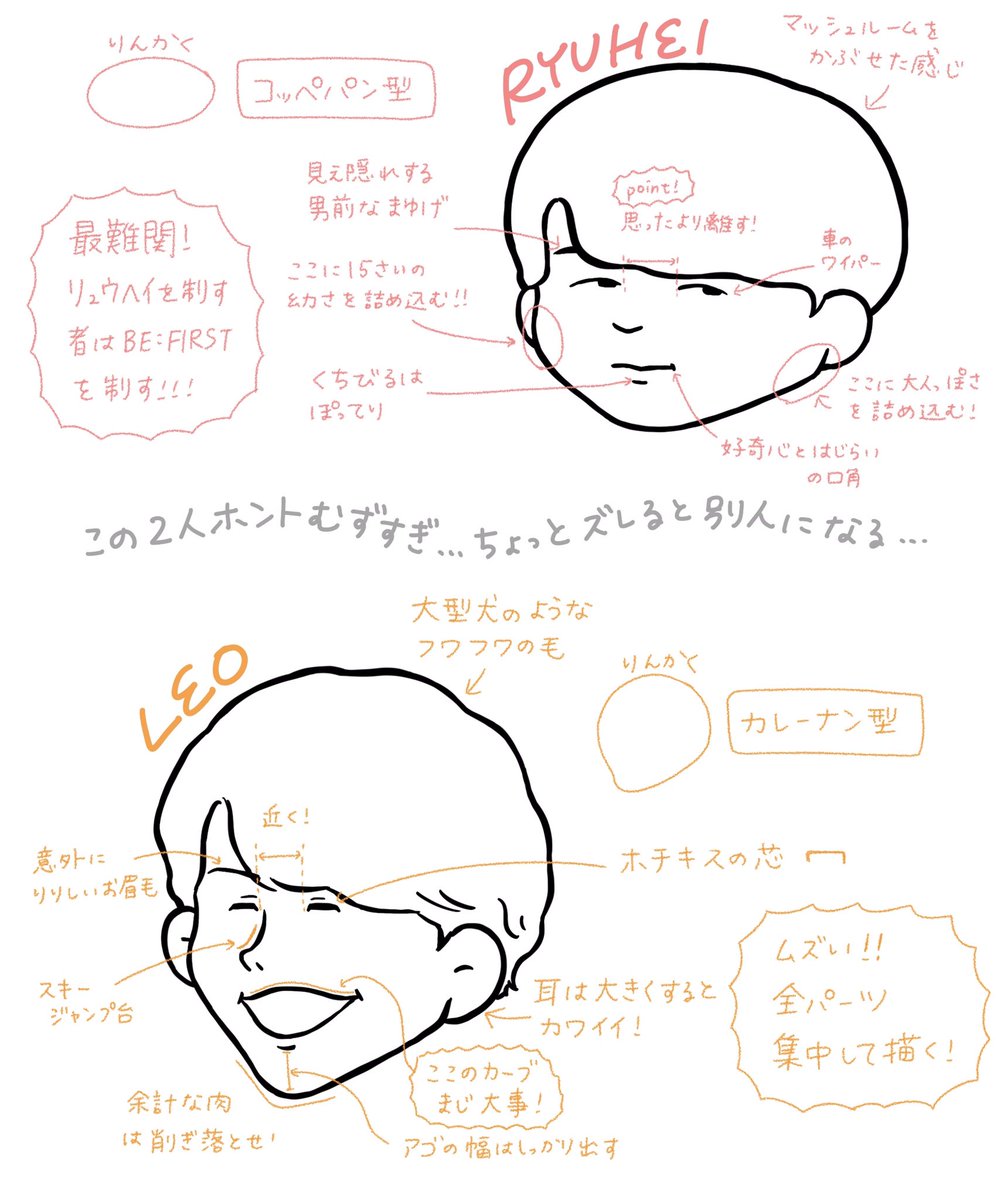 りんかく
コッペパン型
RYUHEI
マッシュルームを
かぶせた感じ
見え隠れする
男前なまゆげ
point!
思ったより離す!
車の
ワイパー
最難関!
リュウヘイを制す
者はBE:FIRST
を制す!!!
ここに15さいの
幼さを詰め込む!!
くちびるは
ぽってり
ここに大人っぽさ
を詰め込む!
好奇心とはじらい
の口角
この2人ホントむずすぎ...ちょっとズレると別人になる...
大型犬のような
フワフワの毛
LEO
りんかく
カレーナン型
近く!
意外に
りりしいお眉毛
ホチキスの芯
スキー
ジャンプ台
耳は大きくすると
カワイイ!
ムズい!!
全パーツ
集中して描く!
ここのカーブ
まじ大事!
余計な肉
は削ぎ落とせ!
アゴの幅はしっかり出す